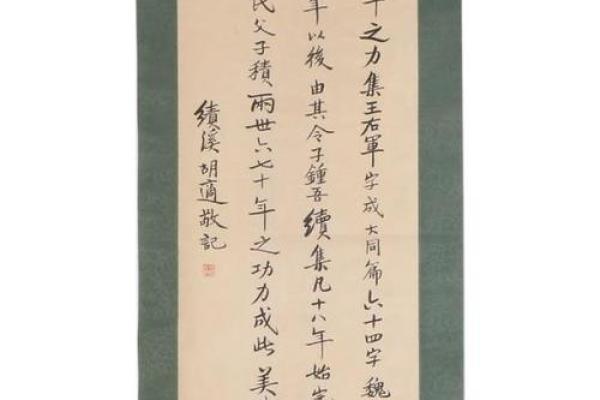 之力集王右軍字成大同篇六十四字魏
年以後由其令子鍾吾續集凡十八年始完
氏父子積兩世六七十年之功力成此美
績溪胡適敬記